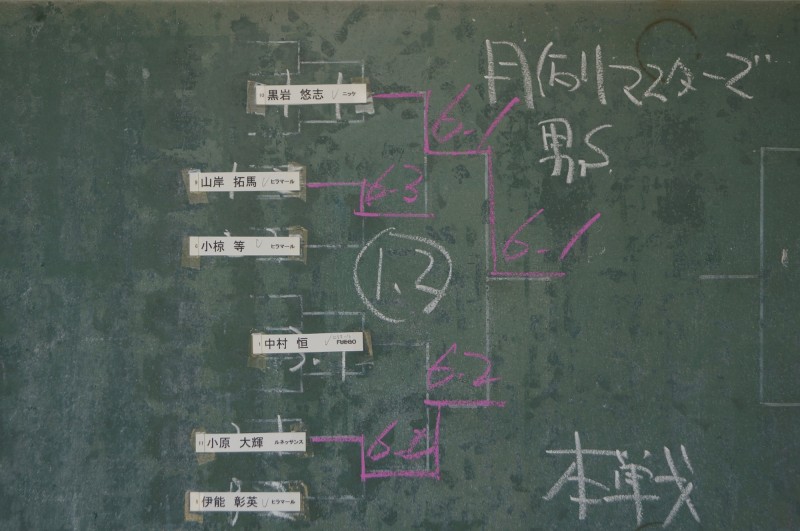 月例マスターズ
男S
黒岩 悠志 ニッケ
6-1
山岸 拓馬 ヒラマール
6-3
6-1
小椋 等 ヒラマール
1.2
中村 恒 FUEGO
6-2
小原 大輝 ルネッサンス
伊能 彰英 ヒラマール
本戦